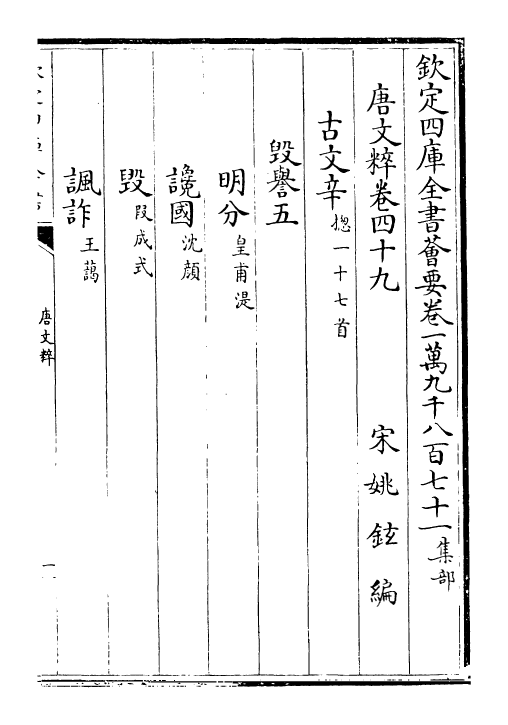 欽定四庫全書薈要卷一萬九千八百七十一集部
唐文粹卷四十九　宋姚鉉編
古文辛摠一十七首
毀譽五
明分皇甫湜
讒國沈顔
毀段成式
諷詐王藹
唐文粹
一